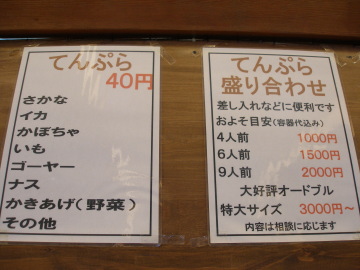 てんぷら
40円
さかな
イカ
かぼちゃ
いも
ゴーヤー
ナス
かきあげ(野菜)
その他
てんぷら
盛り合わせ
差し入れなどに便利です
およそ目安(容器代込み)
4人前 1000円
6人前 1500円
9人前 2000円
大好評オードブル
特大サイズ 3000円～
内容は相談に応じます